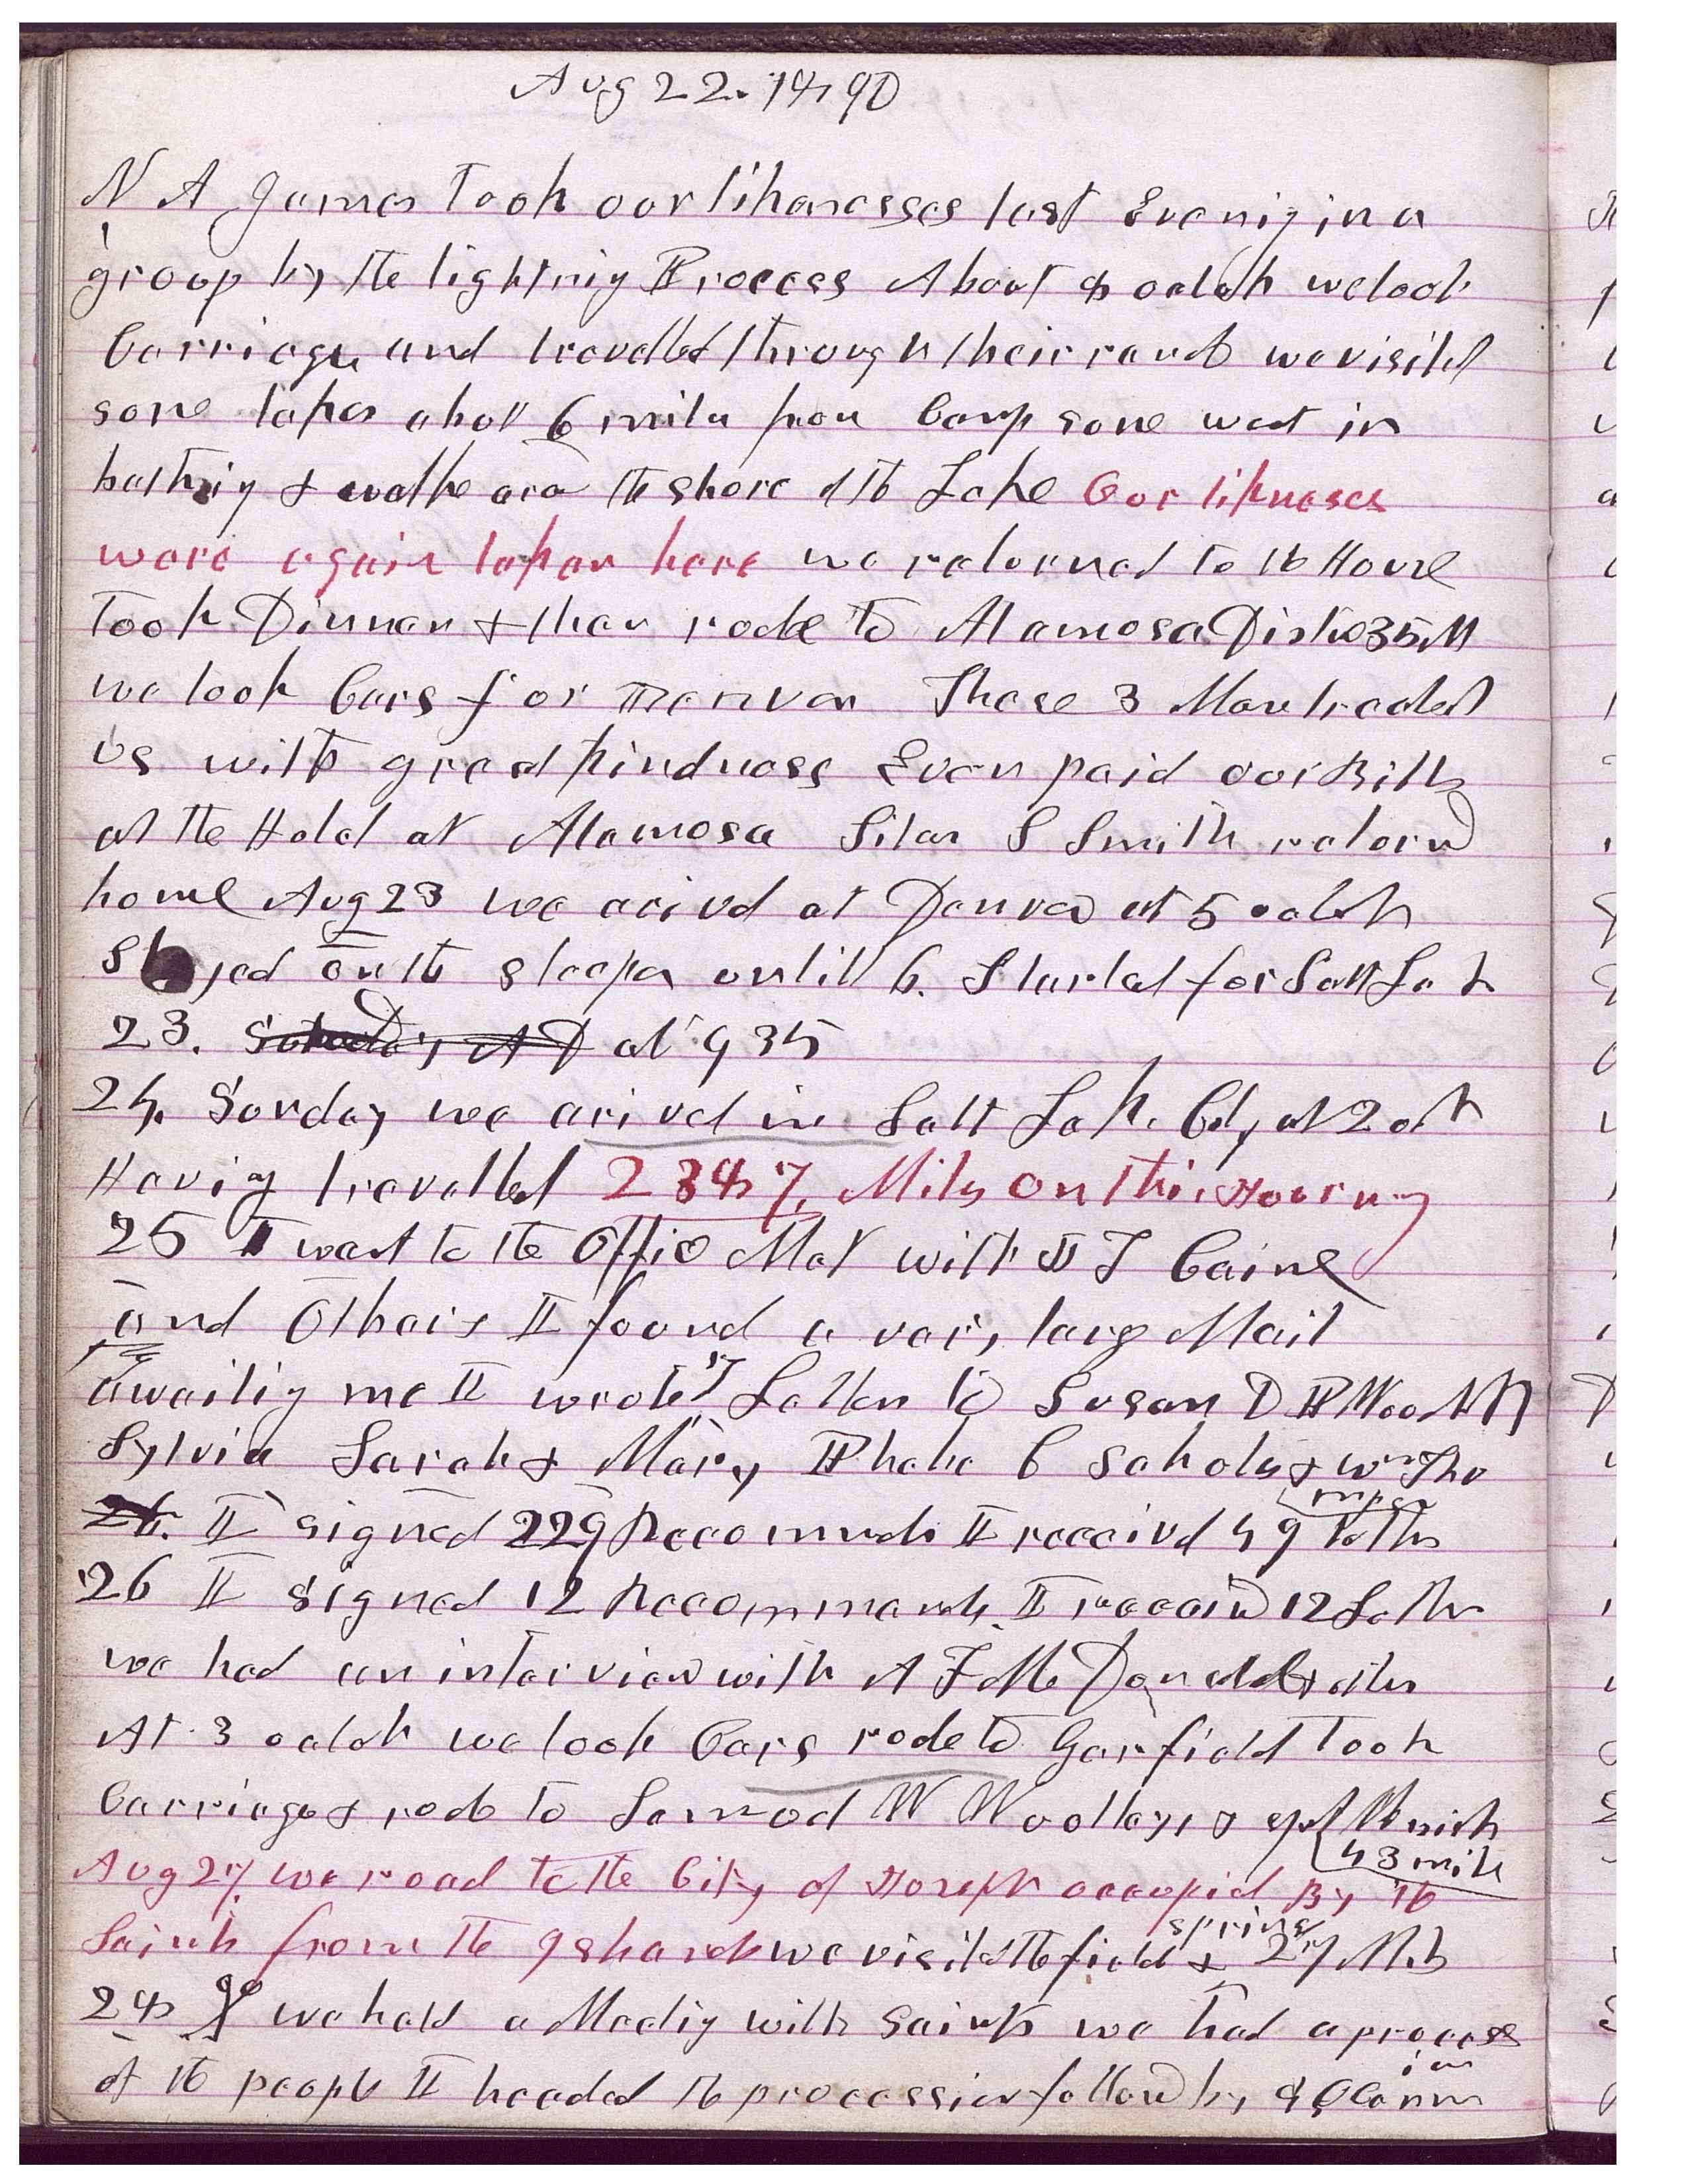 Aug 22. 1890
N A James Took our likenesses last Evenig in a
group by the lightnig Process About 8 oclok we took
Carriage and travelled through their ranch we visited
some lakes about 6 mils from Camp some went in
bathing & walke around the shore of the Lake Our liknesses
were again taken here we returned to the House
Took Dinner & then rode to Alamosa Distce 35 M
we took Cars for Denver These 3 Men treated
us with great kindness Even paid our Bills
at the Hotel at Alamosa Silas S Smith returnd
home Aug 23 we arivd at Denver at 5 oclok
Stayed on the sleeper untill 6. Started for Salt Lak
23. at 9 35
24. Sunday we arived in Salt Lake City at 2 ok
Having travelled 2387, Miles on this Journy
25 I went to the Office Met with J T Caine
and Others I found a very large Mail
awaitig me I wrote 7 Letters to Susan D P Woodruff
Sylvia Sarah & Mary Phebe C Scholes & Wm Tho
mpson
I signed 229 Recomends I receivd 49 Letters
26 I signed 12 Recommends. I receivd 12 Letters
we had an interview with A F McDonald & others
At 3 oclok we took Cars rode to Garfield Took
Carriage & rode to Samuel W Woolleys & spet the night
43 mils
Aug 27 we road to the City of Joseph occupid By the
Saints from the Islands we visitd the field & spring 27 Mils
28 we held a Meetig with Saints we had a process
ion
of the people I headed the procession followd by G Q Cannon